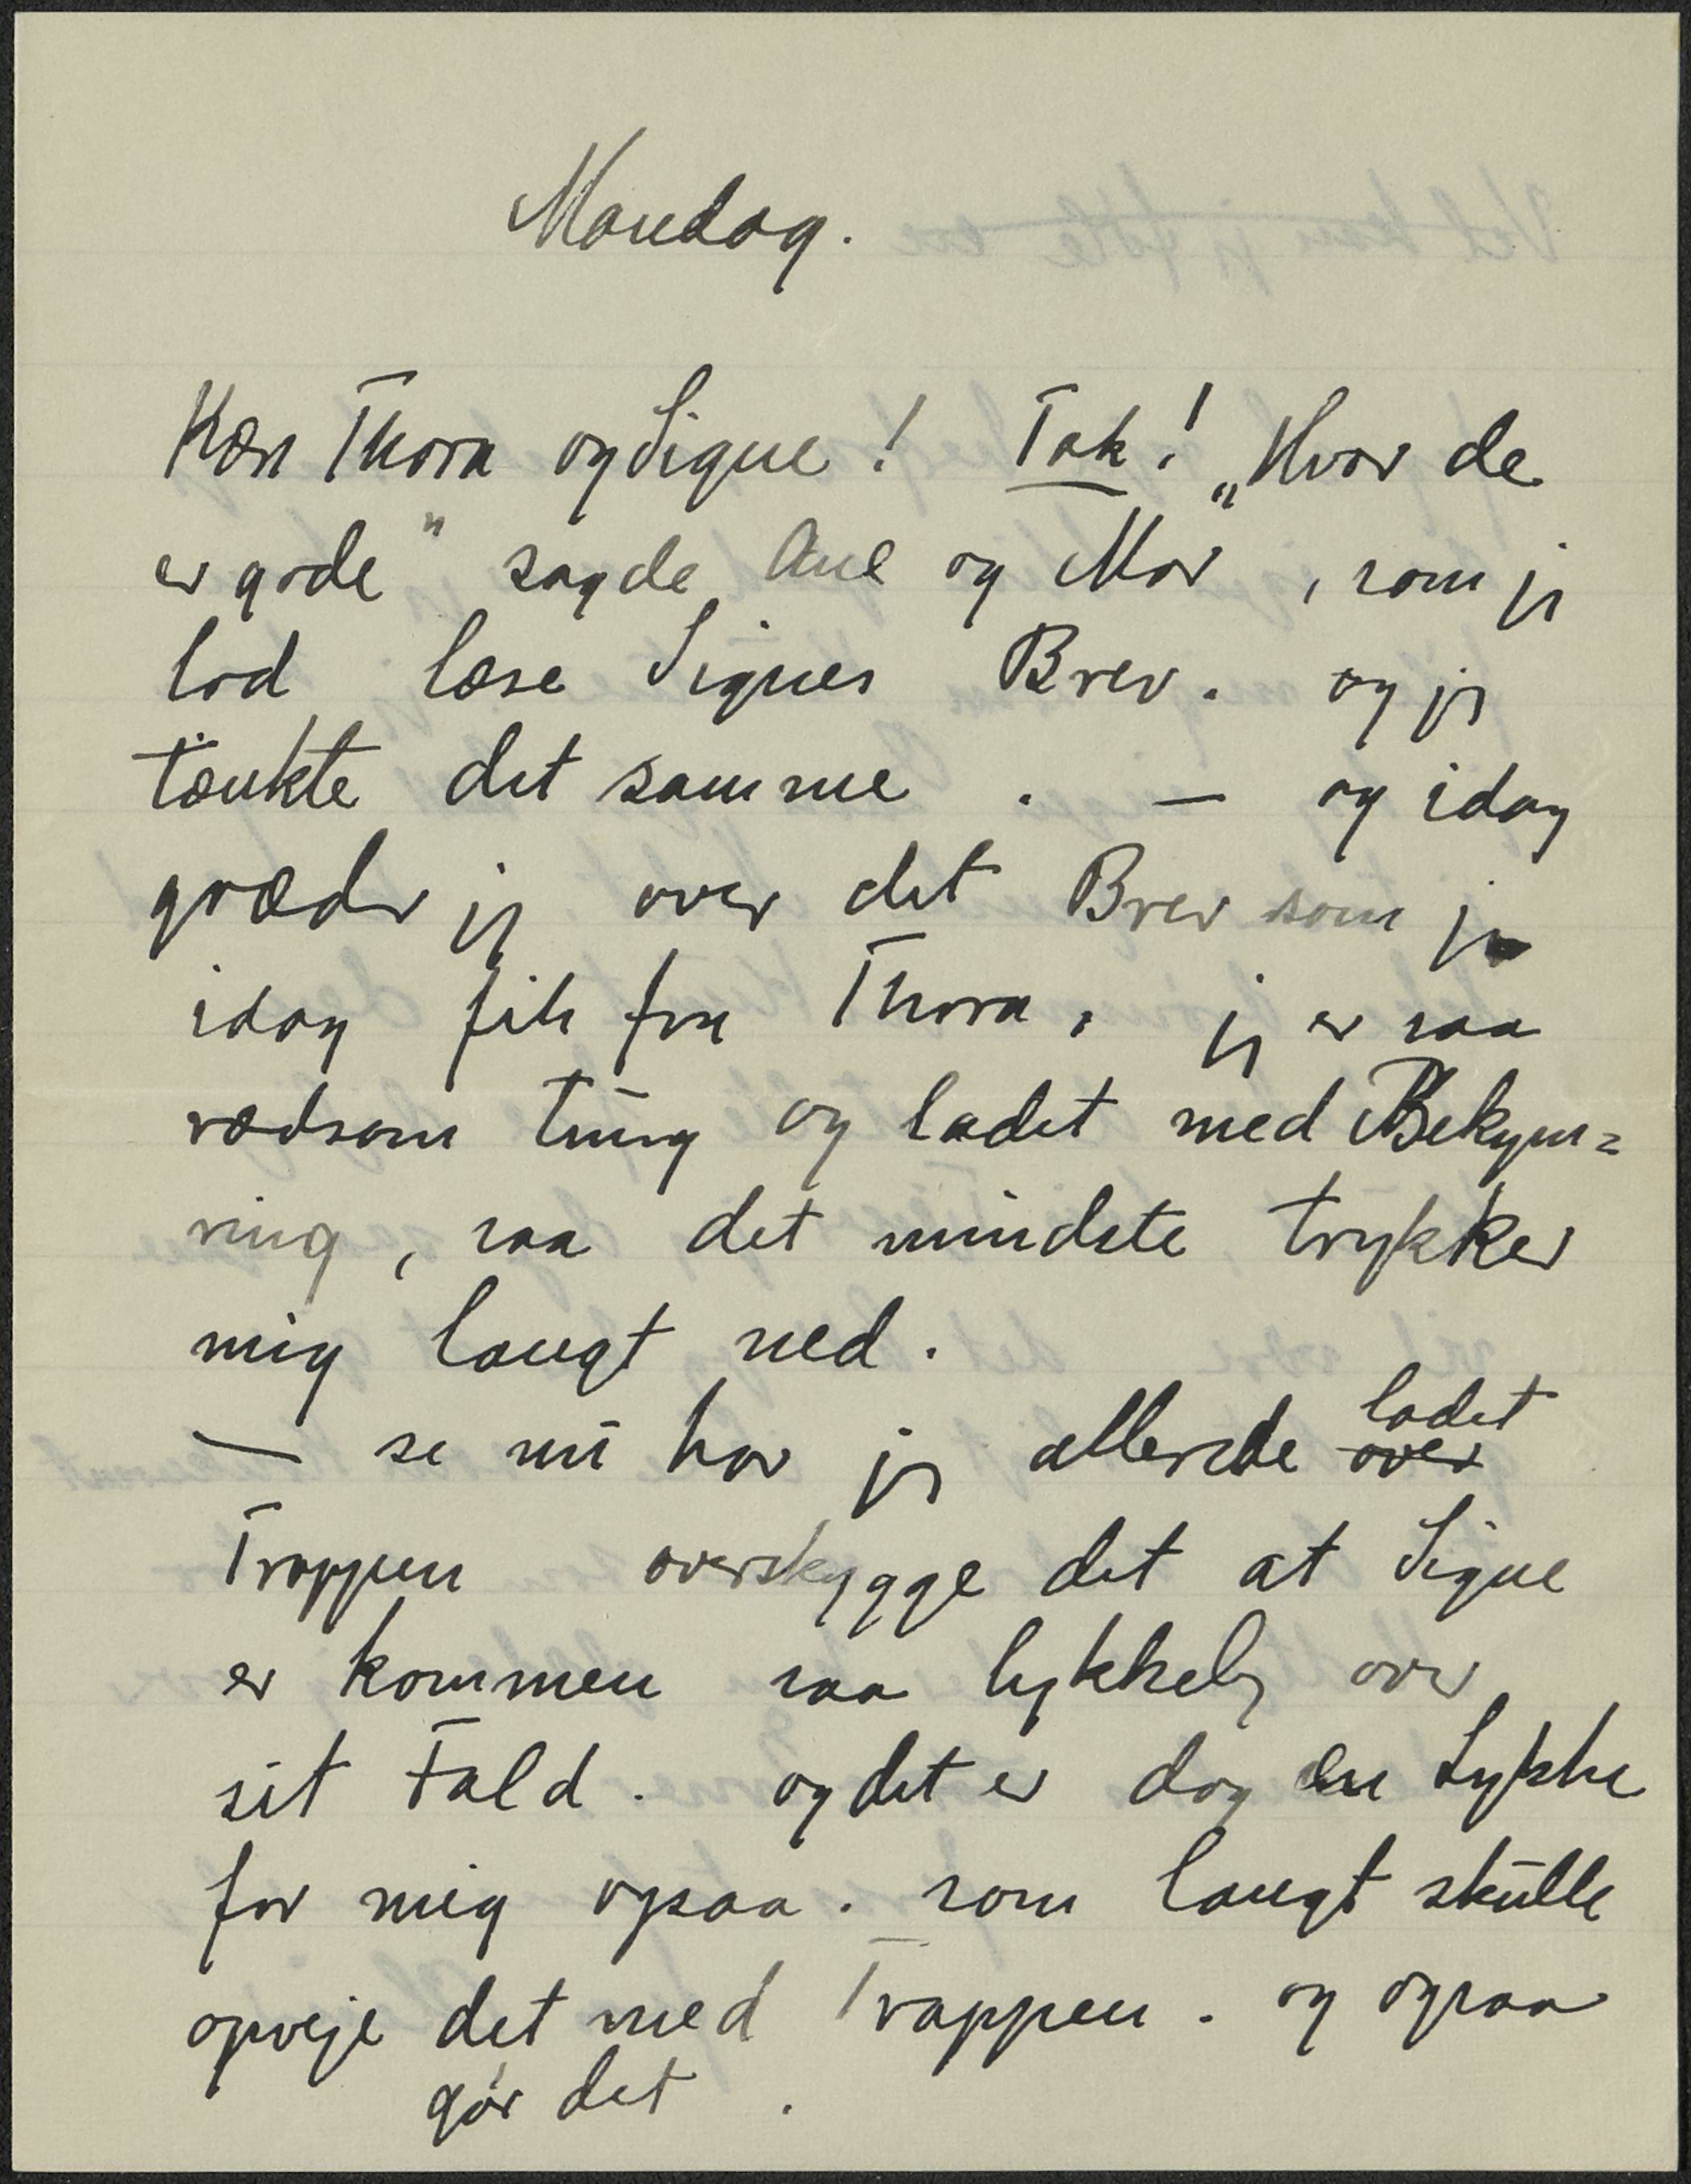 Mandag.
Kære Thora og Signe! Tak! „Hvor de
er gode" sagde Ane og Mor, som jeg
lod læse Signes Brev. og jeg
tænkte det samme. — og idag
græder jeg over det Brev som jeg
idag fik fra Thora, jeg er saa
rædsom tung og ladet med Bekym=
ring, saa det mindste trykker
mig langt ned.
— se nu har jeg allerede over ladet
Trappen overskygge det at Signe
er kommen saa lykkelig over
sit Fald. og det er dog en Lykke
for mig ogsaa. som langt skulle
opveje det med Trappen. og ogsaa
gør det.